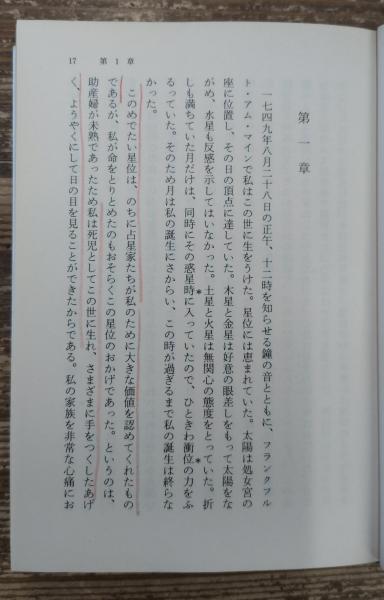 17　第 1 章
第 一 章
一七四九年八月二十八日の正午、十二時を知らせる鐘の音とともに、フランクフル
ト・アム・マインで私はこの世に生をうけた。星位には恵まれていた。太陽は処女宮の
座に位置し、その日の頂点に達していた。木星と金星は好意の眼差しをもって太陽をな
がめ、水星も反感を示してはいなかった。土星と火星は無関心の態度をとっていた。折
しも満ちていた月だけは、同時にその惑星時*に入っていたので、ひときわ衝位*の力をふ
るっていた。そのため月は私の誕生にさからい、この時が過ぎるまで私の誕生は終らな
かった。
このめでたい星位は、のちに占星家たちが私のために大きな価値を認めてくれたもの
であるが、私が命をとりとめたのもおそらくこの星位のおかげであった。というのは、
助産婦が未熟であったため私は死児としてこの世に生れ、さまざまに手をつくしたあげ
く、ようやくにして日の目を見ることができたからである。私の家族を非常な心痛にお